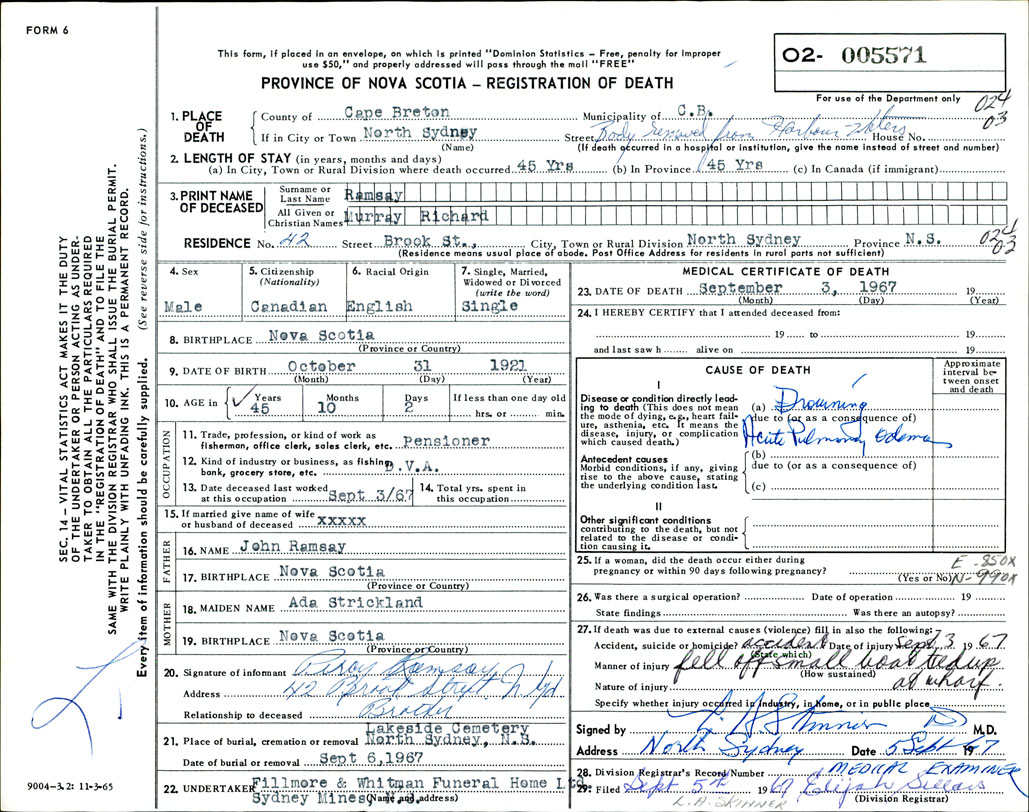 FORM 6
This form, if placed in an envelope, on which is printed "Dominion Statistics – Free, penalty for improper
use $50," and properly addressed will pass through the mail "FREE"
O2- 005571
PROVINCE OF NOVA SCOTIA – REGISTRATION OF DEATH
For use of the Department only
024
03
1. PLACE OF DEATH
County of Cape Breton Municipality of C.B.
If in City or Town North Sydney Street Body removed from Harbour Waters House No.
(Name) (If death occurred in a hospital or institution, give the name instead of street and number)
2. LENGTH OF STAY (in years, months and days)
(a) In City, Town or Rural Division where death occurred 45 Yrs (b) In Province 45 Yrs (c) In Canada (if immigrant)
3. PRINT NAME OF DECEASED
Surname or Last Name Ramsay
All Given or Christian Names Murray Richard
RESIDENCE No. 42 Street Brook St., City, Town or Rural Division North Sydney Province N.S.
024
03
(Residence means usual place of abode. Post Office Address for residents in rural parts not sufficient)
4. Sex
Male
5. Citizenship
(Nationality)
Canadian
6. Racial Origin
English
7. Single, Married,
Widowed or Divorced
(write the word)
Single
8. BIRTHPLACE Nova Scotia
(Province or Country)
9. DATE OF BIRTH October 31 1921
(Month) (Day) (Year)
10. AGE in Years Months Days If less than one day old
45 10 2 hrs. or min.
OCCUPATION
11. Trade, profession, or kind of work as
fisherman, office clerk, sales clerk, etc. Pensioner
12. Kind of industry or business, as fishing,
bank, grocery store, etc. D.V.A.
13. Date deceased last worked
at this occupation Sept 3/67
14. Total yrs. spent in
this occupation
15. If married give name of wife
or husband of deceased xxxxx
FATHER
16. NAME John Ramsay
17. BIRTHPLACE Nova Scotia
(Province or Country)
MOTHER
18. MAIDEN NAME Ada Strickland
19. BIRTHPLACE Nova Scotia
(Province or Country)
20. Signature of informant Ramsay
Address 42 Brook Street N Syd
Relationship to deceased Brother
21. Place of burial, cremation or removal Lakeside Cemetery
North Sydney, N.S.
Date of burial or removal Sept 6,1967
22. UNDERTAKER Fillmore & Whitman Funeral Home Ltd
Sydney Mines, N.S.
(Name and address)
MEDICAL CERTIFICATE OF DEATH
23. DATE OF DEATH September 3, 1967 19
(Month) (Day) (Year)
24. I HEREBY CERTIFY that I attended deceased from:
19 to 19
and last saw h alive on 19
CAUSE OF DEATH
Approximate
interval be-
tween onset
and death
I
Disease or condition directly lead-
ing to death (This does not mean
the mode of dying, e.g., heart fail-
ure, asthenia, etc. It means the
disease, injury, or complication
which caused death.)
(a) Drowning
due to (or as a consequence of)
Acute Pulmonary Edema
Antecedent causes
Morbid conditions, if any, giving
rise to the above cause, stating
the underlying condition last.
(b)
due to (or as a consequence of)
(c)
II
Other significant conditions
contributing to the death, but not
related to the disease or condi-
tion causing it.
25. If a woman, did the death occur either during
pregnancy or within 90 days following pregnancy?
(Yes or No)
E-850X
N-990X
26. Was there a surgical operation? Date of operation 19
State findings Was there an autopsy?
27. If death was due to external causes (violence) fill in also the following:
Accident, suicide or homicide? accident Date of injury Sept 3 1967
(State which)
Manner of injury fell off small boat tied up
(How sustained)
at wharf.
Nature of injury
Specify whether injury occurred in industry, in home, or in public place
Signed by L A Skinner M.D.
Address North Sydney Date 5 Sept 1967
28. Division Registrar's Record Number MEDICAL EXAMINER
29. Filed Sept 5th 1967 Elijah Sellars
L.A. SKINNER (Division Registrar)
SEC. 14 – VITAL STATISTICS ACT MAKES IT THE DUTY
OF THE UNDERTAKER OR PERSON ACTING AS UNDER-
TAKER TO OBTAIN ALL THE PARTICULARS REQUIRED
IN THE "REGISTRATION OF DEATH" AND TO FILE THE
SAME WITH THE DIVISION REGISTRAR WHO SHALL ISSUE THE BURIAL PERMIT.
WRITE PLAINLY WITH UNFADING INK. THIS IS A PERMANENT RECORD.
Every item of information should be carefully supplied. (See reverse side for instructions.)
9004-3.2: 11-3-65